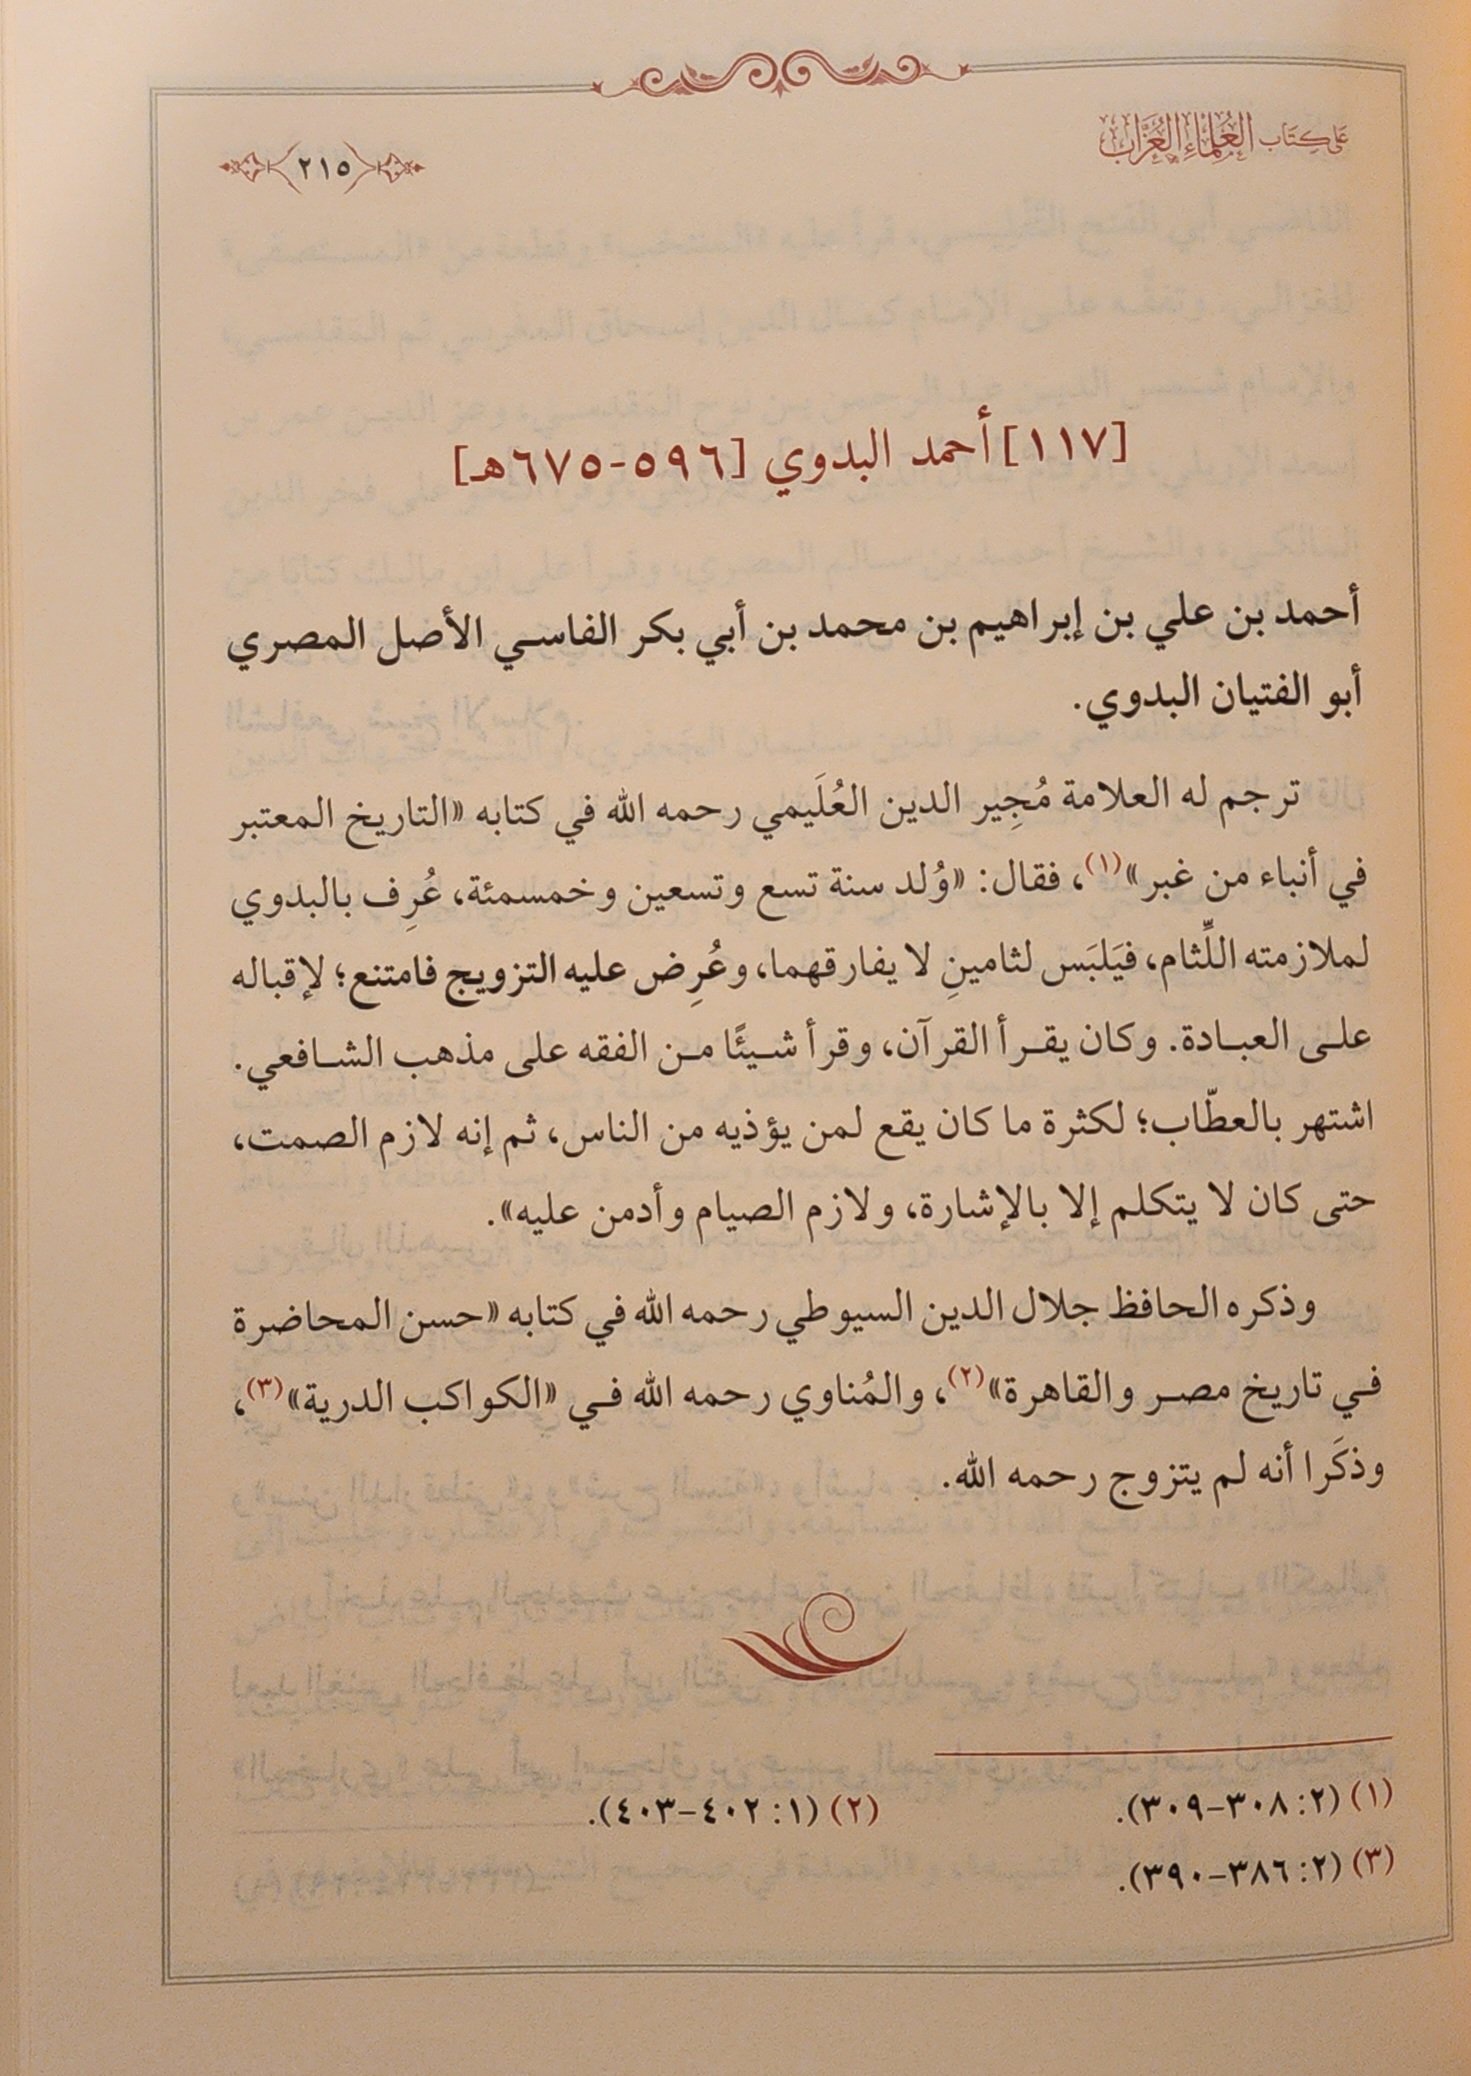 على كتاب العلماء العزاب
٢١٥
[١١٧] أحمد البدوي [٥٩٦-٦٧٥هـ]
أحمد بن علي بن إبراهيم بن محمد بن أبي بكر الفاسي الأصل المصري
أبو الفتيان البدوي.
ترجم له العلامة مُجِير الدين العُلَيمي رحمه الله في كتابه «التاريخ المعتبر
في أنباء من غبر»(١)، فقال: «وُلد سنة تسع وتسعين وخمسمئة، عُرِف بالبدوي
لملازمته اللِّثام، فيَلبَس لثامينِ لا يفارقهما، وعُرِض عليه التزويج فامتنع؛ لإقباله
على العبادة. وكان يقرأ القرآن، وقرأ شيئًا من الفقه على مذهب الشافعي.
اشتهر بالعطّاب؛ لكثرة ما كان يقع لمن يؤذيه من الناس، ثم إنه لازم الصمت،
حتى كان لا يتكلم إلا بالإشارة، ولازم الصيام وأدمن عليه».
وذكره الحافظ جلال الدين السيوطي رحمه الله في كتابه «حسن المحاضرة
في تاريخ مصر والقاهرة»(٢)، والمُناوي رحمه الله في «الكواكب الدرية»(٣)،
وذكَرا أنه لم يتزوج رحمه الله.
(١) (٢: ٣٠٨-٣٠٩).
(٢) (١: ٤٠٢-٤٠٣).
(٣) (٢: ٣٨٦-٣٩٠).